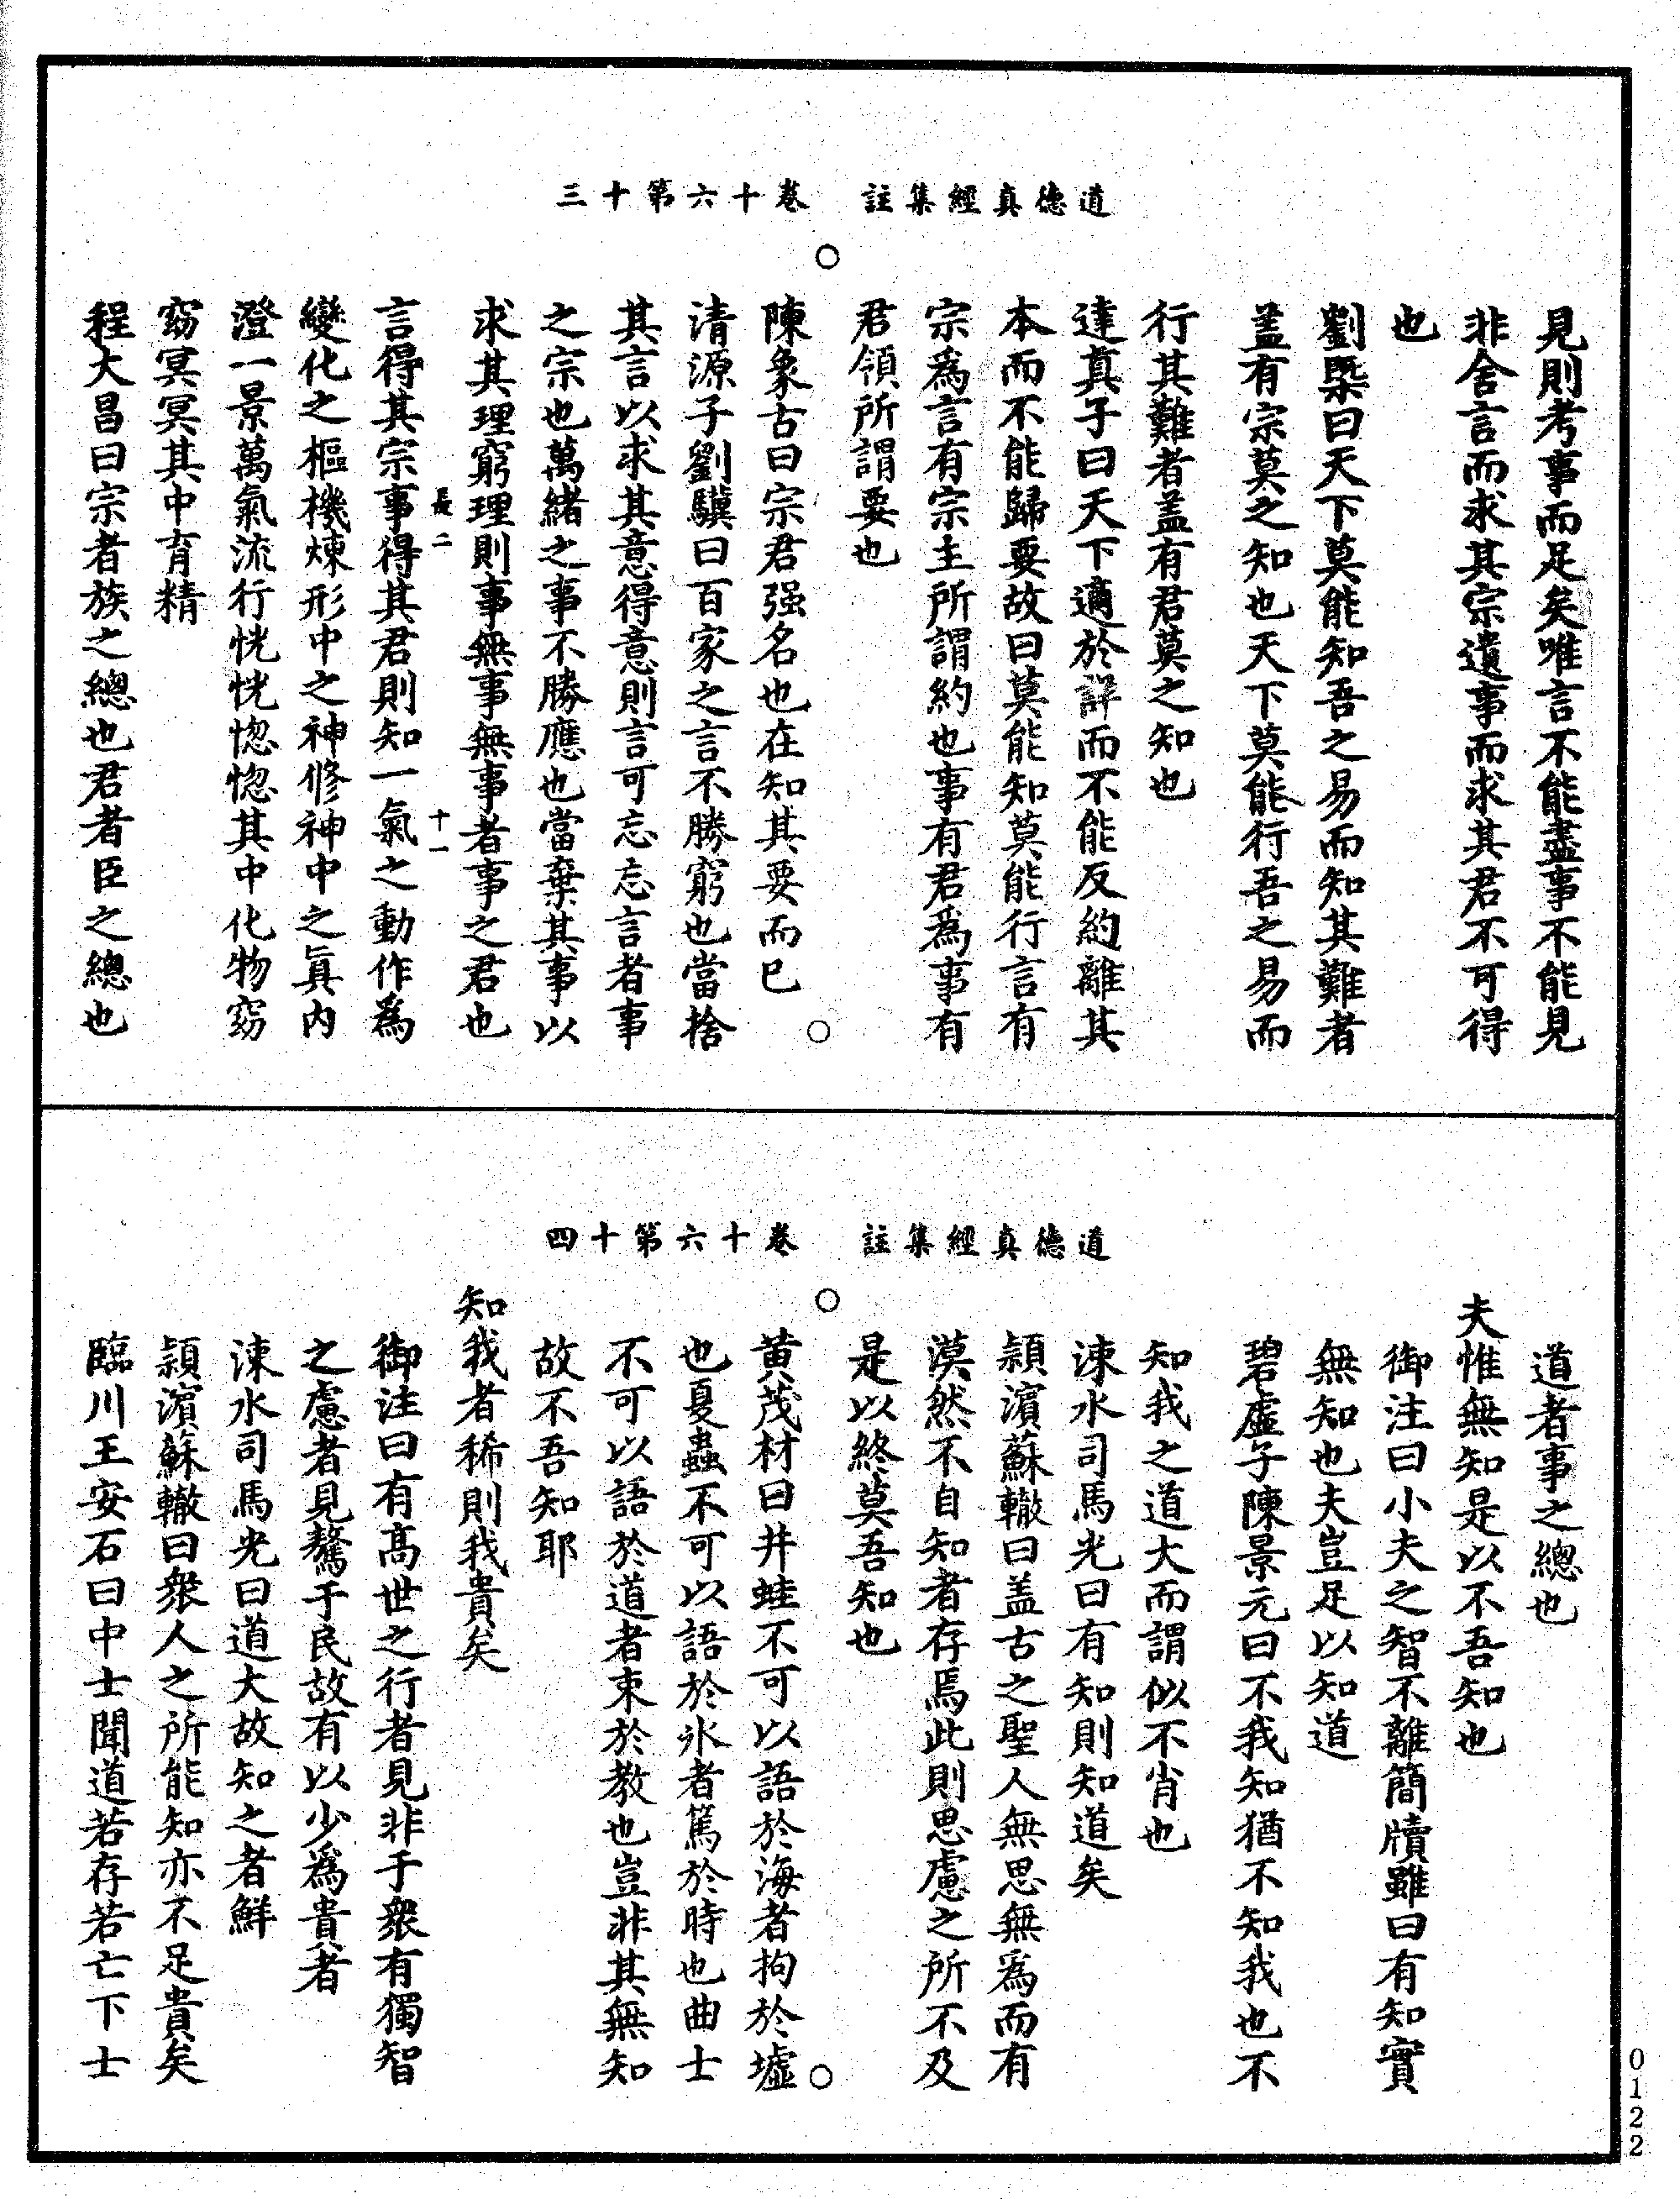 道德真經集註　卷十六第十三
見則考事而足矣唯言不能盡事不能見
非舍言而求其宗遺事而求其君不可得
也
劉槩曰天下莫能知吾之易而知其難者
盖有宗莫之知也天下莫能行吾之易而
行其難者盖有君莫之知也
達真子曰天下適於詳而不能反約離其
本而不能歸要故曰莫能知莫能行言有
宗爲言有宗主所謂約也事有君爲事有
君領所謂要也
陳象古曰宗君强名也在知其要而已
清源子劉驥曰百家之言不勝窮也當捨
其言以求其意得意則言可忘忘言者事
之宗也萬緒之事不勝應也當棄其事以
求其理窮理則事無事無事者事之君也
長二　十一
言得其宗事得其君則知一氣之動作爲
變化之樞機煉形中之神修神中之真内
澄一景萬氣流行恍恍惚惚其中化物窈
窈冥冥其中育精
程大昌曰宗者族之總也君者臣之總也
道德真經集註　卷十六第十四
道者事之總也
夫惟無知是以不吾知也
御注曰小夫之智不離簡牘雖曰有知實
無知也夫豈足以知道
碧虛子陳景元曰不我知猶不知我也不
知我之道大而謂似不肖也
涑水司馬光曰有知則知道矣
頴濱蘇轍曰盖古之聖人無思無爲而有
漠然不自知者存焉此則思慮之所不及
是以終莫吾知也
黄茂材曰井蛙不可以語於海者拘於墟
也夏蟲不可以語於氷者篤於時也曲士
不可以語於道者束於教也豈非其無知
故不吾知耶
知我者稀則我貴矣
御注曰有高世之行者見非于衆有獨智
之慮者見驁于民故有以少爲貴者
涑水司馬光曰道大故知之者鮮
頴濱蘇轍曰衆人之所能知亦不足貴矣
臨川王安石曰中士聞道若存若亡下士
0122